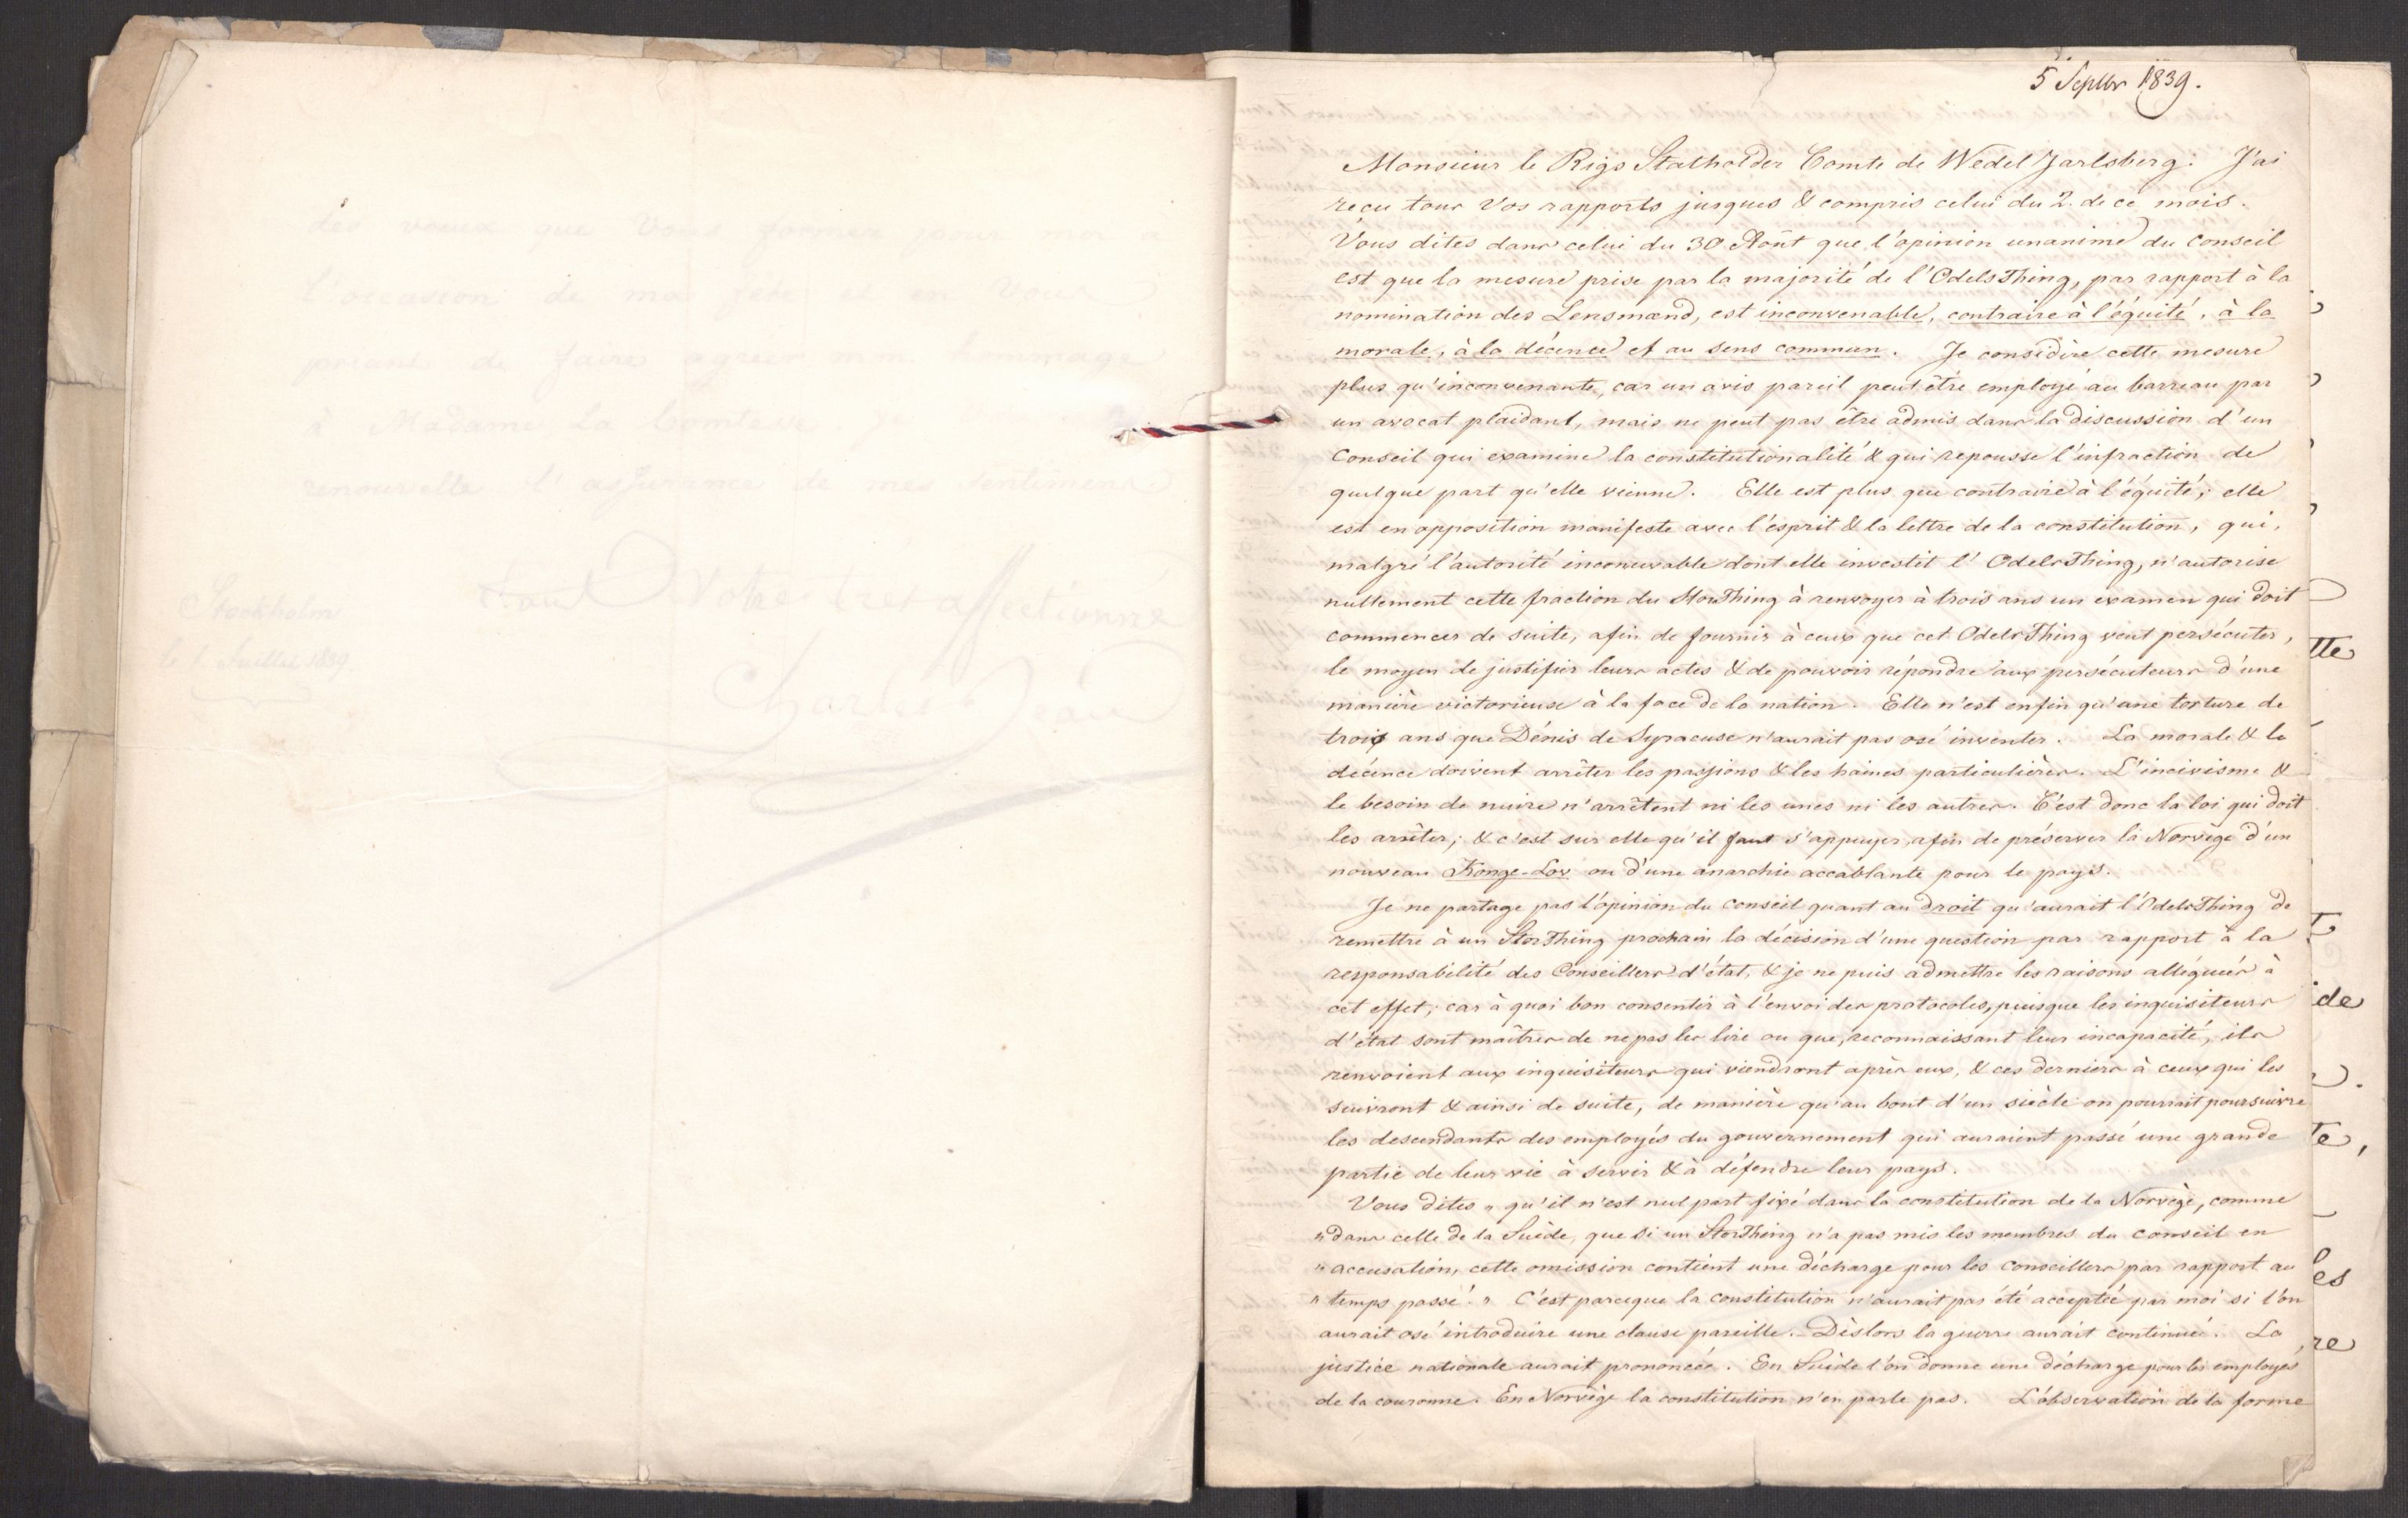 les voeux que Vous
l'occasion de ma fête Vous
priant de faire agréer hommages
à Madame La Comtesse
renouvelle l'assurance de mes sentimens
Votre très affectionné
Stockholm
le Juillet 1839
Charles Jean
5 Septbr 1839.
Monsieur le Rigs Statholder Comte de Wedel Jarlsberg. J'ai
reçu tous Vos rapports jusques & compris celui du 2. de ce mois.
Vous dites dans celui du 30 Août que l'opinion unanime du Conseil
est que la mesure prise par la majorité de l'OdelsThing, par rapport à la
nomination des Lensmænd, est inconvenable, contraire à l'équité, à la
morale, à la décence et au sens commun. Je considère cette mesure
plus qu'inconvenante, car un avis pareil peut être employé au barreau par
un avocat plaidant, mais ne peut pas être admis dans la discussion d'un
Conseil qui examine la constitutionalité & qui repousse l'infraction de
quelque part qu'elle vienne. Elle est plus que contraire à l'équité; elle
est en opposition manifeste avec l'esprit & la lettre de la constitution, qui,
malgré l'autorité inconcevable dont elle investit l'OdelsThing, n'autorise
nullement cette fraction du StorThing à renvoyer à trois ans un examen qui doit
commencer de suite, afin de fournir à ceux que cet OdelsThing veut persécuter,
le moyen de justifier leurs actes & de pouvoir répondre aux persécuteurs d'une
manière victorieuse à la face de la nation. Elle n'est enfin qu'une torture de
trois ans que Dénis de Syracuse n'aurait pas osé inventer. La morale & la
décence doivent arrêter les passions & les haines particulières. L'incivisme &
le besoin de nuire n'arrêtent ni les unes ni les autres. C'est donc la loi qui doit
les arrêter; & c'est sur elle qu'il faut s'appuyer, afin de préserver la Norvège d'un
nouveau Konge-Lov ou d'une anarchie accablante pour le pays.
Je ne partage pas l'opinion du conseil quant au droit qu'aurait l'OdelsThing de
remettre à un StorThing prochain la décision d'une question par rapport à la
responsabilité des Conseillers d'état, & je ne puis admettre les raisons alléguées à
cet effet; car à quoi bon consentir à l'envoi des protocoles, puisque les inquisiteurs
d'état sont maîtres de ne pas les lire ou que, reconnaissant leur incapacité, ils
renvoient aux inquisiteurs qui viendront après eux, & ces derniers à ceux qui les
suivront & ainsi de suite, de manière qu'au bout d'un siècle on pourrait poursuivre
les descendants des employés du gouvernement qui auraient passé une grande
partie de leur vie à servir & à défendre leur pays.
Vous dites „ qu'il n'est nul part fixé dans la constitution de la Norvège, comme
„ dans celle de la Suède, que si un StorThing n'a pas mis les membres du conseil en
„ accusation, cette omission contient une décharge pour les conseillers par rapport au
„ temps passé. „ C'est parceque la constitution n'aurait pas été acceptée par moi si l'on
aurait osé introduire une clause pareille. Dèslors la guerre aurait continué. La
justice nationale aurait prononcée. En Suède l'on donne une décharge pour les employés
de la couronne. En Norvège la constitution n'en parle pas. L'observation de la forme
tte
de
te,
les
re